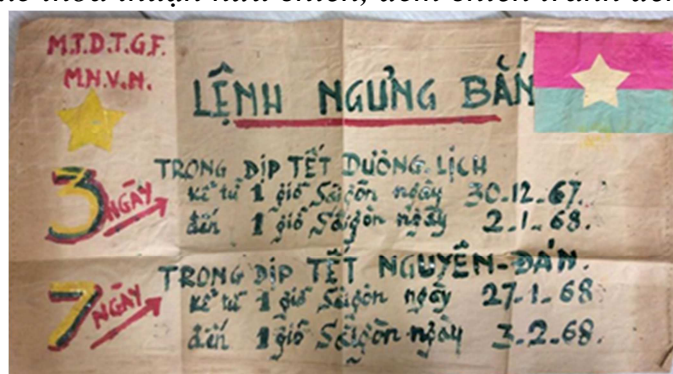 M.T.D.T.G.F.
M.N.V.N.
LỆNH NGƯNG BẮN
3 NGÀY
TRONG DỊP TẾT DƯƠNG LỊCH
kể từ 1 giờ Sàigòn ngày 30.12.67.
đến 1 giờ Sàigòn ngày 2.1.68.
7 NGÀY
TRONG DỊP TẾT NGUYÊN-ĐÁN.
kể từ 1 giờ Sàigòn ngày 27.1.68
đến 1 giờ Sàigòn ngày 3.2.68.